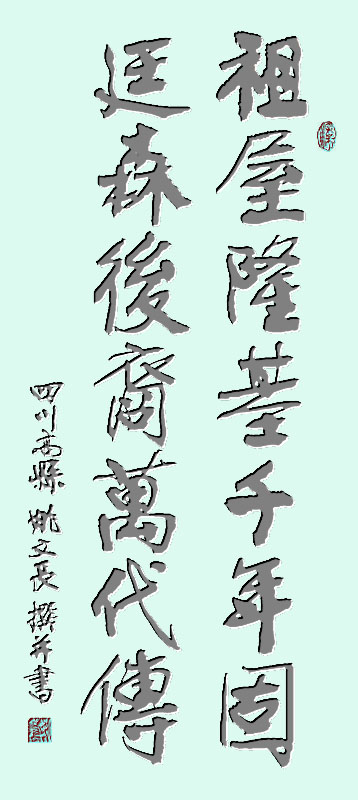 祖屋隆基千年固
廷森後裔萬代傳
四川高縣姚文長撰并書